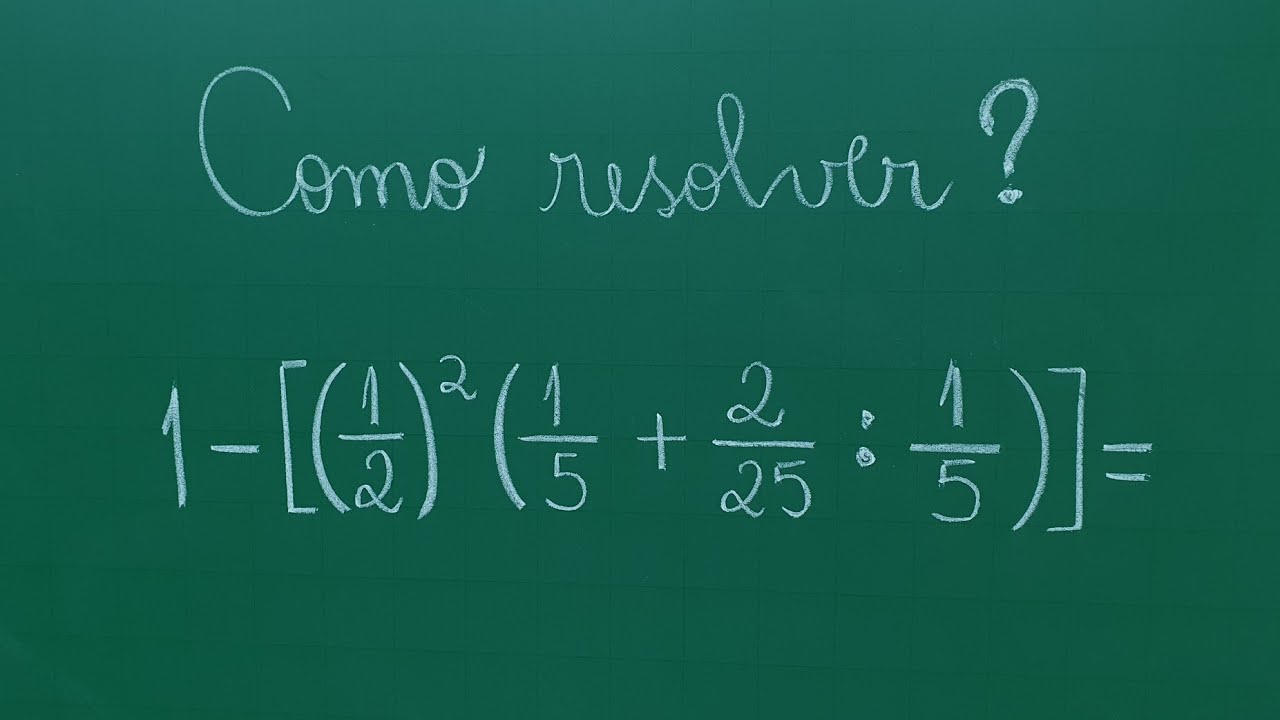 Como resolver?
1 - [(1/2)² (1/5 + 2/25 : 1/5)] =